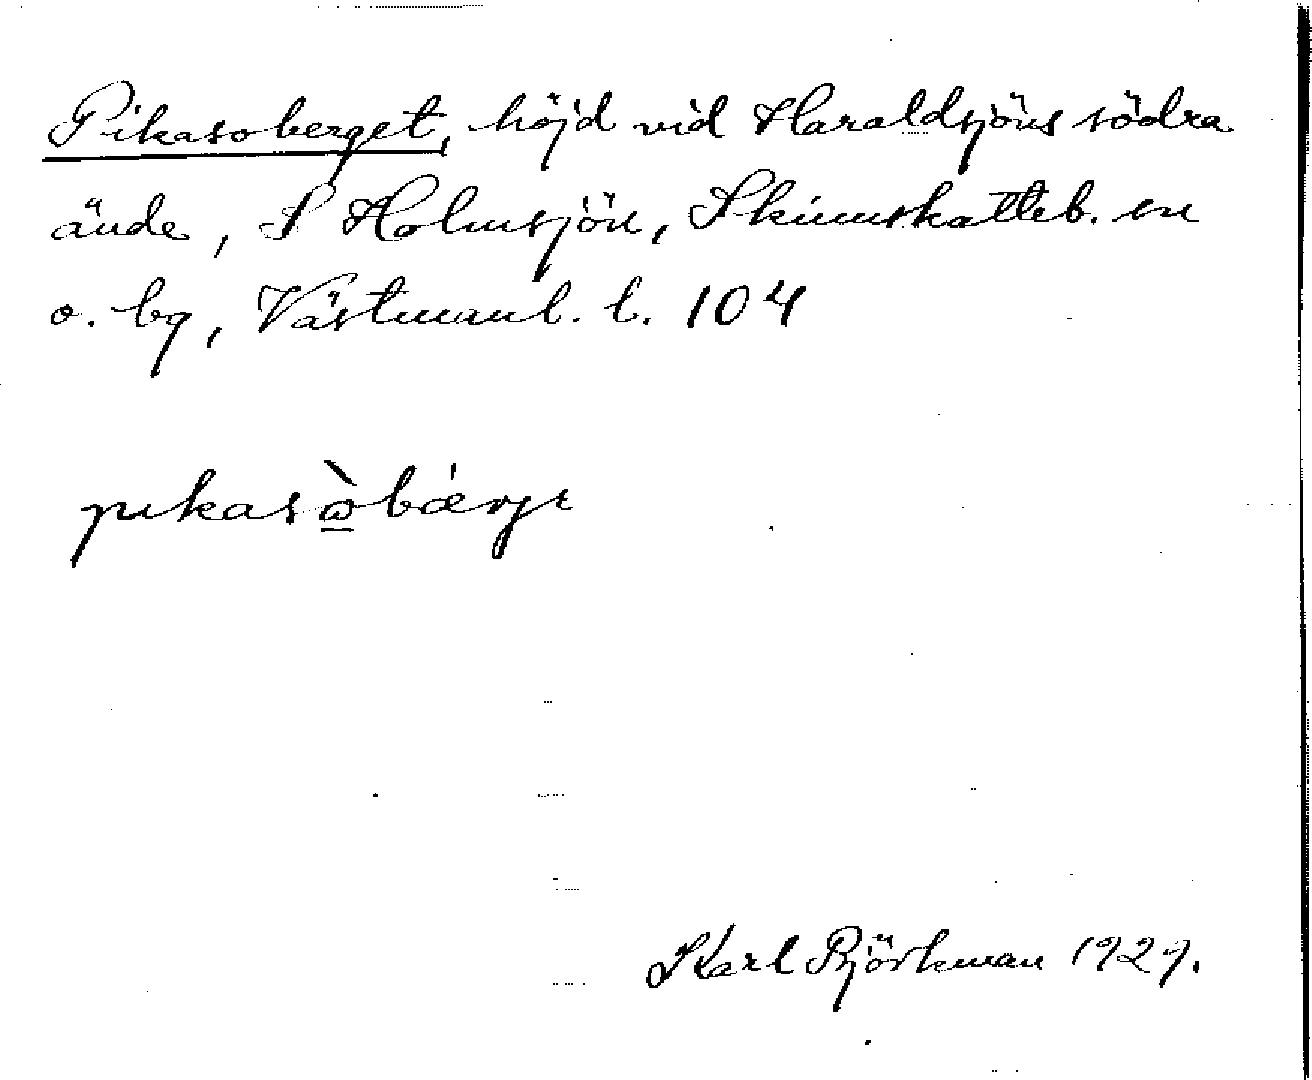 Pikasoberget, höjd vid Haraldsjöns södra
ände, S Holmsjön, Skinnskatteb. sn
o. bg, Västmanl. l. 104
pikasòbærjɩ
Karl Björkman 1929.